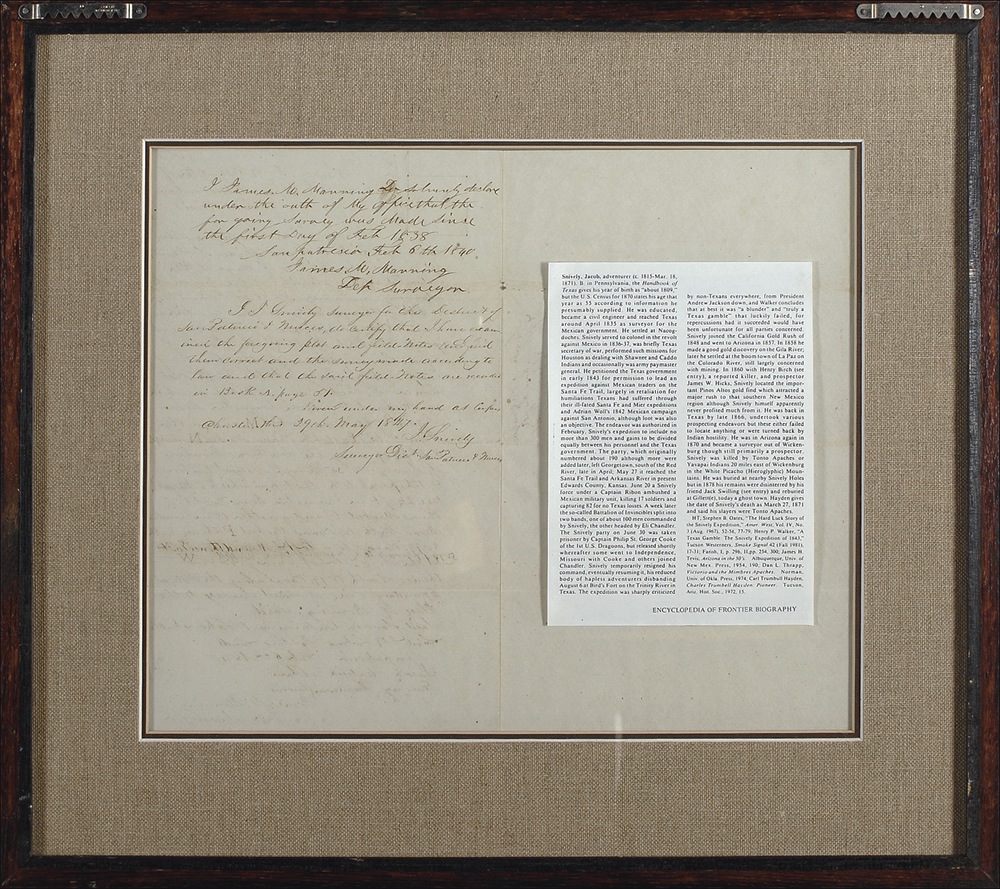 I James M. Manning Do solemnly declare
under the oath of My office that the
for going Survey was Made Since
the first Day of Feb 1838
San patricio Feb 6th 1840
James M. Manning
Dep Surveyor
I J Snively surveyor for the District of
San Patricio & Nueces, do certify that I have exam
ined the foregoing plat and field Notes and find
them correct and the survey made according to
law and that the said field Notes are recorded
in Book page
Given under my hand at Corpus
Christi this 29th May 1847
J Snively
Surveyor Dist San Patricio & Nueces
Snively, Jacob, adventurer (c. 1815-Mar. 18,
1871). B. in Pennsylvania, the Handbook of
Texas gives his year of birth as "about 1809,"
but the U.S. Census for 1870 states his age that
year as 55 according to information he
presumably supplied. He was educated,
became a civil engineer and reached Texas
around April 1835 as surveyor for the
Mexican government. He settled at Nacog-
doches. Snively served to colonel in the revolt
against Mexico in 1836-37, was briefly Texas
secretary of war, performed such missions for
Houston as dealing with Shawnee and Caddo
Indians and occasionally was army paymaster
general. He petitioned the Texas government
in early 1843 for permission to lead an
expedition against Mexican traders on the
Santa Fe Trail, largely in retaliation for
humiliations Texans had suffered through
their ill-fated Santa Fe and Mier expeditions
and Adrian Woll's 1842 Mexican campaign
against San Antonio, although loot was also
an objective. The endeavor was authorized in
February, Snively's expedition to include no
more than 300 men and gains to be divided
equally between his personnel and the Texas
government. The party, which originally
numbered about 190 although more were
added later, left Georgetown, south of the Red
River, late in April; May 27 it reached the
Santa Fe Trail and Arkansas River in present
Edwards County, Kansas. June 20 a Snively
force under a Captain Ribon ambushed a
Mexican military unit, killing 17 soldiers and
capturing 82 for no Texas losses. A week later
the so-called Battalion of Invincibles split into
two bands, one of about 100 men commanded
by Snively, the other headed by Eli Chandler.
The Snively party on June 30 was taken
prisoner by Captain Philip St. George Cooke
of the 1st U.S. Dragoons, but released shortly
whereafter some went to Independence,
Missouri with Cooke and others joined
Chandler. Snively temporarily resigned his
command, eventually resuming it, his reduced
body of hapless adventurers disbanding
August 6 at Bird's Fort on the Trinity River in
Texas. The expedition was sharply criticized
by non-Texans everywhere, from President
Andrew Jackson down, and Walker concludes
that at best it was "a blunder" and "truly a
Texas gamble" that luckily failed, for
repercussions had it succeeded would have
been unfortunate for all parties concerned.
Snively joined the California Gold Rush of
1848 and went to Arizona in 1857. In 1858 he
made a good gold discovery on the Gila River;
later he settled at the boom town of La Paz on
the Colorado River, still largely concerned
with mining. In 1860 with Henry Birch (see
entry), a reported killer, and prospector
James W. Hicks, Snively located the impor-
tant Pinos Altos gold find which attracted a
major rush to that southern New Mexico
region although Snively himself apparently
never profited much from it. He was back in
Texas by late 1866, undertook various
prospecting endeavors but these either failed
to locate anything or were turned back by
Indian hostility. He was in Arizona again in
1870 and became a surveyor out of Wicken-
burg though still primarily a prospector.
Snively was killed by Tonto Apaches or
Yavapai Indians 20 miles east of Wickenburg
in the White Picacho (Hieroglyphic) Moun-
tains. He was buried at nearby Snively Holes
but in 1878 his remains were disinterred by his
friend Jack Swilling (see entry) and reburied
at Gillett(e), today a ghost town. Hayden gives
the date of Snively's death as March 27, 1871
and said his slayers were Tonto Apaches.
HT; Stephen B. Oates, "The Hard Luck Story of
the Snively Expedition," Amer. West, Vol. IV, No.
3 (Aug. 1967), 52-58, 77-79; Henry P. Walker, "A
Texas Gamble: The Snively Expedition of 1843,"
Tucson, Westerners, Smoke Signal 42 (Fall 1981),
17-31; Farish, I, p. 296, II, pp. 254, 300; James H.
Tevis, Arizona in the 50's. Albuquerque, Univ. of
New Mex. Press, 1954, 190; Dan L. Thrapp,
Victorio and the Mimbres Apaches. Norman,
Univ. of Okla. Press, 1974; Carl Trumbull Hayden,
Charles Trumbull Hayden: Pioneer. Tucson,
Ariz. Hist. Soc., 1972, 15.
ENCYCLOPEDIA OF FRONTIER BIOGRAPHY